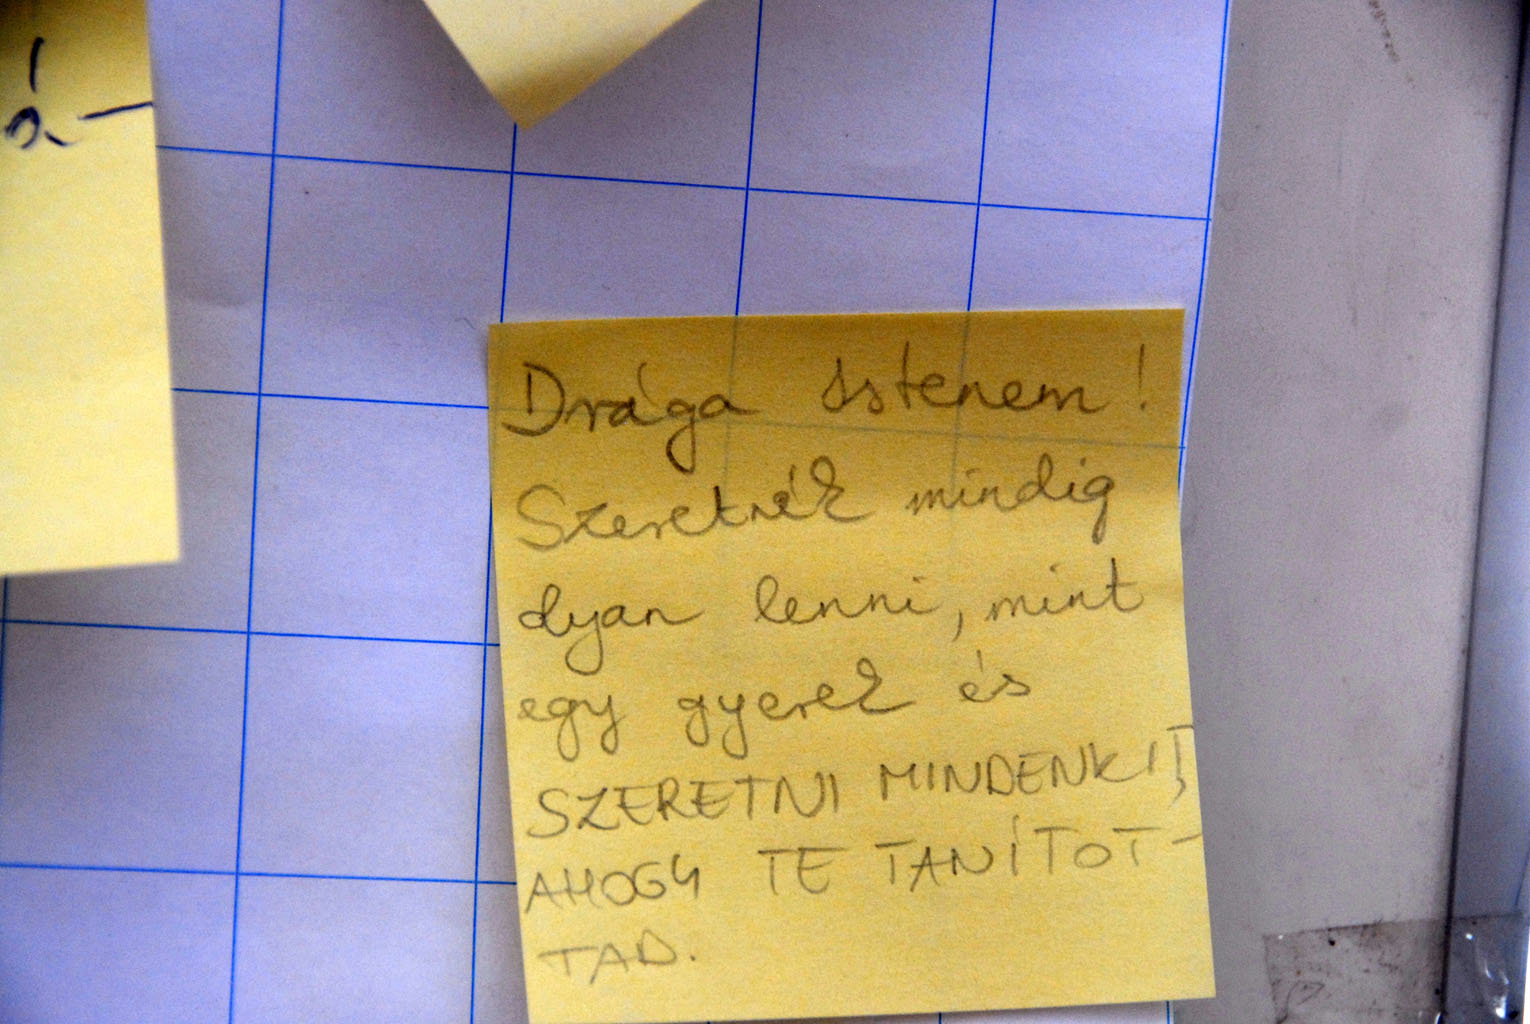 á-
Drága Istenem!
Szeretnék mindig
olyan lenni, mint
egy gyerek és
SZERETNI MINDENKIT,
AHOGY TE TANÍTOT-
TAD.